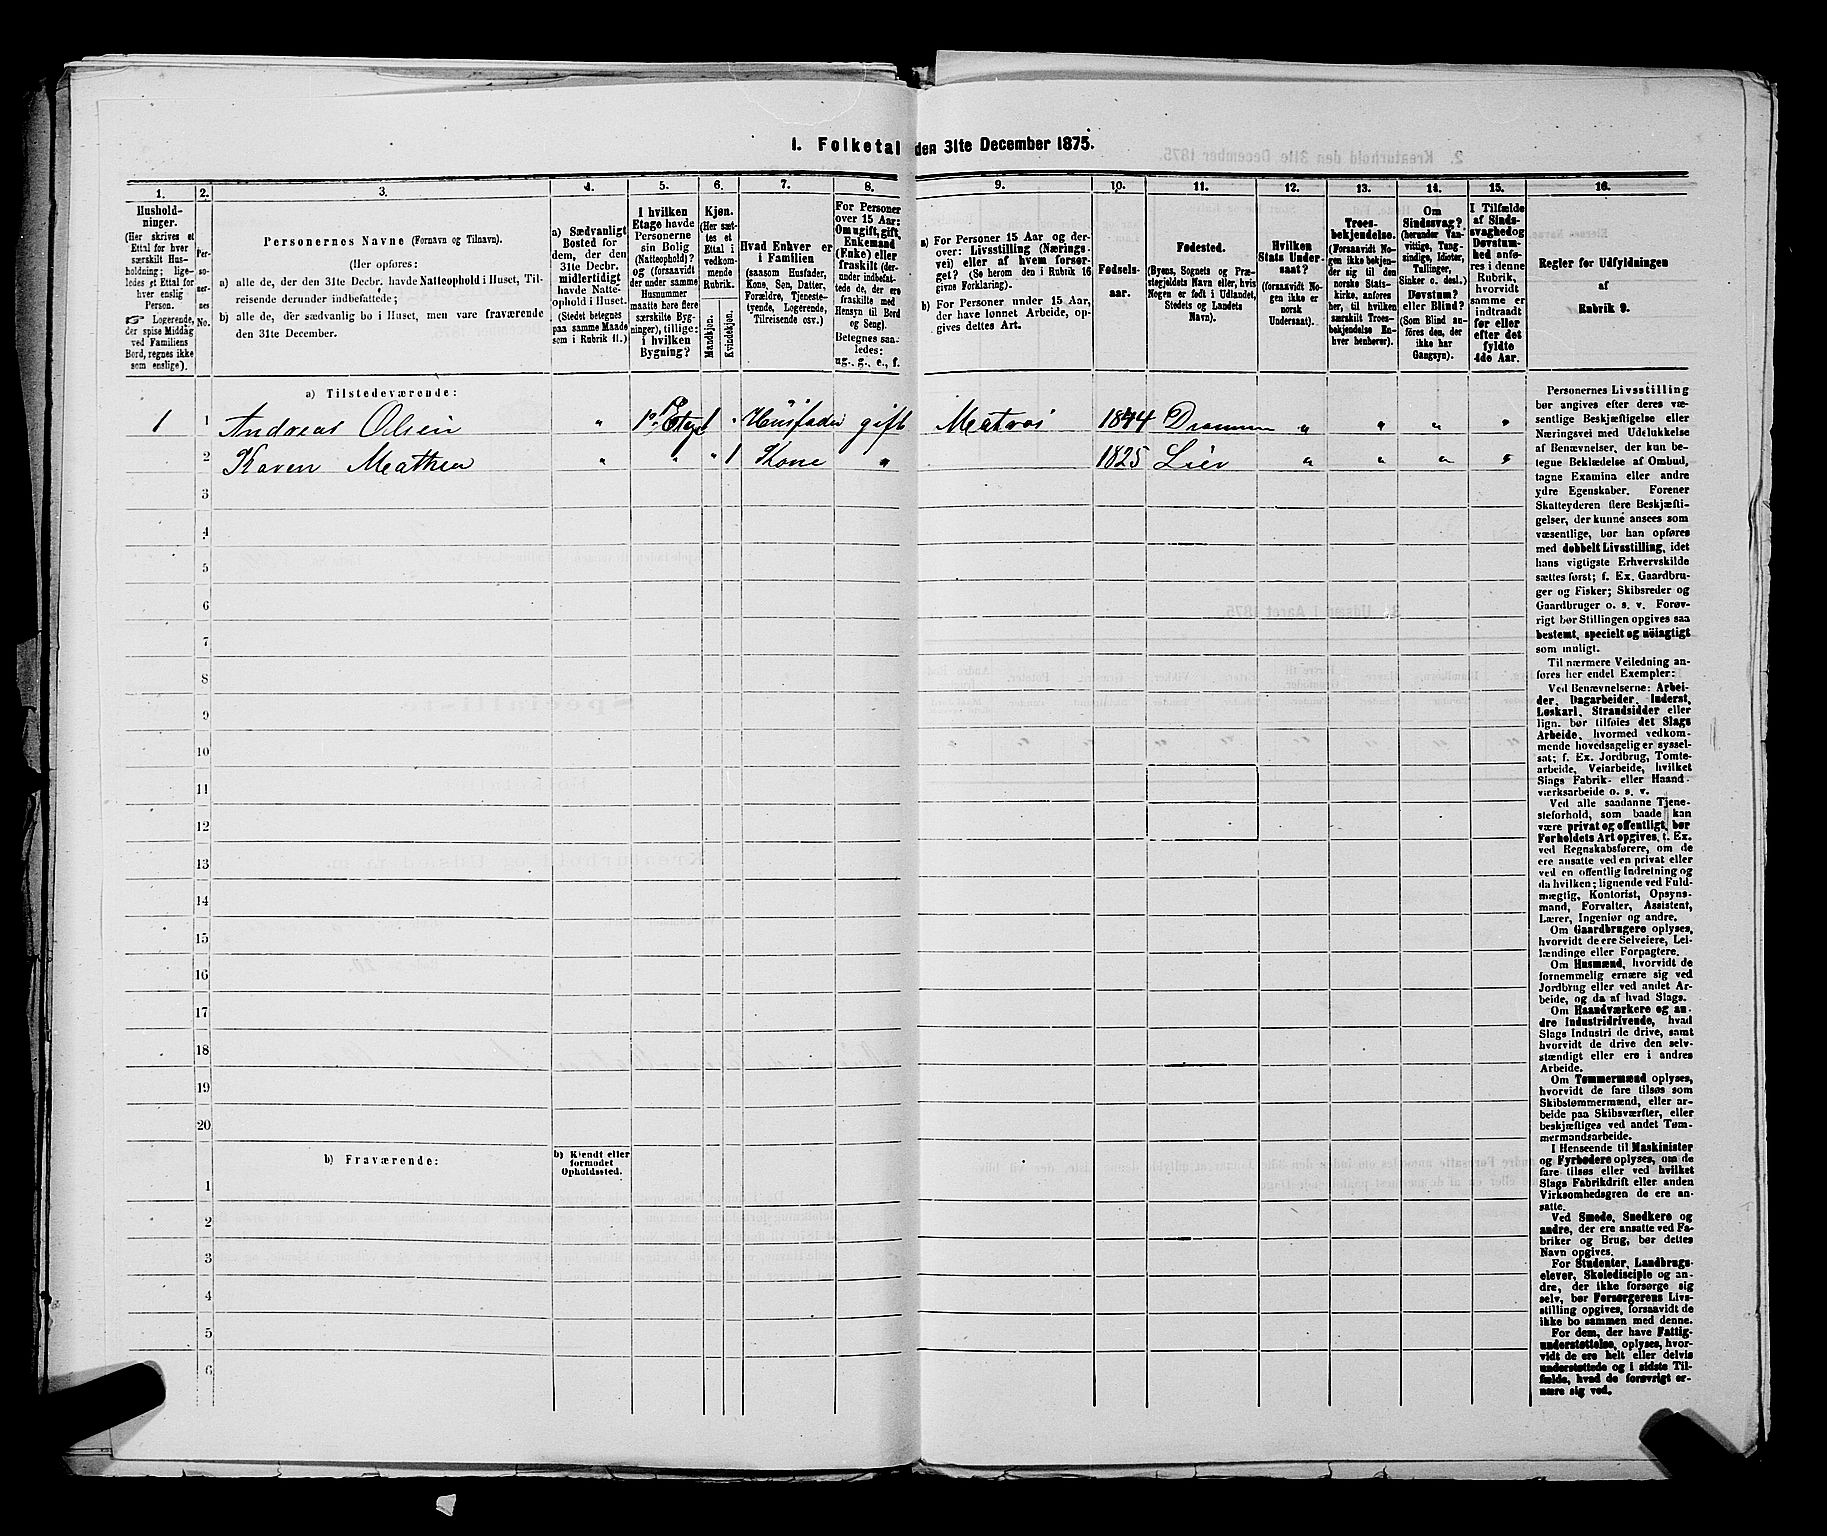 1. Folketal den 31te December 1875.
1.
2.
3.
4.
5.
6.
7.
8.
9.
10.
11.
12.
13.
14.
15.
16.
Hushold-
ninger.
(Her skrives et
Ettal for hver
særskilt Hus-
holdning; lige-
ledes et Ettal for
hver enslig
Person.
☞ Logerende,
der spise Middag
ved Familiens
Bord, regnes ikke
som enslige).
Per-
so-
ner-
nes
No.
Personernes Navne (Fornavn og Tilnavn).
(Her opføres:
a) alle de, der den 31te Decbr. havde Natteophold i Huset, Til-
reisende derunder indbefattede;
b) alle de, der sædvanlig bo i Huset, men vare fraværende
den 31te December.
a) Sædvanligt
Bosted for
dem, der den
31te Decbr.
midlertidigt
havde Natte-
ophold i Huset.
(Stedet betegnes
paa samme Maade
som i Rubrik 11.)
I hvilken
Etage havde
Personerne
sin Bolig
(Natteophold)?
og (forsaavidt
der under samme
Husnummer
maatte høre flere
særskilte Byg-
ninger), tillige:
i hvilken
Bygning?
Kjøn.
(Her sæt-
tes et
Ettal i
vedkom-
mende
Rubrik.
Mandkjøn.
Kvindekjøn.
Hvad Enhver er
i Familien
(saasom Husfader,
Kone, Søn, Datter,
Forældre, Tjeneste-
tyende, Logerende,
Tilreisende osv.)
For Personer
over 15 Aar:
Om ugift, gift,
Enkemand
(Enke) eller
fraskilt (der-
under indbefat-
tede de, der ere
fraskilte med
Hensyn til Bord
og Seng).
Betegnes saa-
ledes:
ug., g., e., f.
a) For Personer 15 Aar og der-
over: Livsstilling (Nærings-
vei) eller af hvem forsør-
get? (Se herom den i Rubrik 16
givne Forklaring).
b) For Personer under 15 Aar,
der have lønnet Arbeide, op-
gives dettes Art.
Fødsels-
aar.
Fødested.
(Byens, Sognets og Præ-
stegjeldets Navn eller, hvis
Nogen er født i Udlandet,
Stedets og Landets
Navn).
Hvilken
Stats Under-
saat?
(forsaavidt No-
gen ikke er
norsk
Undersaat).
Troes-
bekjendelse.
(Forsaavidt No-
gen ikke bekjen-
der sig til den
norske Stats-
kirke, anføres
her, til hvilken
særskilt Troes-
bekjendelse En-
hver henhører).
Om
Sindssvag?
(herunder Van-
vittige, Tung-
sindige, Idioter,
Tullinger,
Sinker o. desl.)
Døvstum?
eller Blind?
(Som Blind an-
føres den, der
ikke har
Gangsyn).
I Tilfælde
af Sinds-
svaghed og
Døvstum-
hed anfø-
res i denne
Rubrik,
hvorvidt
samme er
indtraadt
før eller
efter det
fyldte
4de Aar.
Regler for Udfyldningen
af
Rubrik 9.
a) Tilstedeværende:
1 1 Andreas Olsen " 1ste Etage 1 " Huusfader gift Matros 1844 Drammen " " " "
2 Karen Mathea " " " 1 Kone " 1825 Lier " " " "
3
4
5
6
7
8
9
10
11
12
13
14
15
16
17
18
19
20
b) Fraværende:
b) Kjendt eller
formodet
Opholdssted.
1
2
3
4
5
6
Personernes Livsstilling
bør angives efter deres væ-
sentlige Beskjæftigelse eller
Næringsvei med Udelukkelse
af Benævnelser, der kun be-
tegne Beklædelse af Ombud,
tagne Examina eller andre
ydre Egenskaber. Forener
Skatteyderen flere Beskjæfti-
gelser, der kunne ansees som
væsentlige, bør han opføres
med dobbelt Livsstilling, idet
hans vigtigste Erhvervskilde
sættes først; f. Ex. Gaardbru-
ger og Fisker; Skibsreder og
Gaardbruger o. s. v. Forøv-
rigt bør Stillingen opgives saa
bestemt, specielt og nöiagtigt
som muligt.
Til nærmere Veiledning an-
føres her endel Exempler:
Ved Benævnelserne: Arbei-
der, Dagarbeider, Inderst,
Løskarl, Strandsidder eller
lign. bør tilføies det Slags
Arbeide, hvormed vedkom-
mende hovedsagelig er syssel-
sat; f. Ex. Jordbrug, Tomte-
arbeide, Veiarbeide, hvilket
Slags Fabrik- eller Haand-
værksarbeide o. s. v.
Ved alle saadanne Tjene-
steforhold, som baade kan
være privat og offentligt, bør
Forholdets Art opgives, f. Ex.
ved Regnskabsførere, om de
ere ansatte ved en privat eller
ved en offentlig Indretning og
da hvilken; lignende ved Fuld-
mægtig, Kontorist, Opsyns-
mand, Forvalter, Assistent,
Lærer, Ingeniør og andre.
Om Gaardbrugere oplyses,
hvorvidt de ere Selveiere, Lei-
lændinge eller Forpagtere.
Om Husmænd, hvorvidt de
fornemmelig ernære sig ved
Jordbrug eller ved andet Ar-
beide, og da af hvad Slags.
Om Haandværkere og an-
dre Industridrivende, hvad
Slags Industri de drive, samt
hvorvidt de drive den selv-
stændigt eller ere i andres
Arbeide.
Om Tømmermænd oplyses,
hvorvidt de fare tilsøs som
Skibstømmermænd, eller ar-
beide paa Skibsværfter, eller
beskjæftiges ved andet Tøm-
mermandsarbeide.
I Henseende til Maskinister
og Fyrbødere oplyses, om de
fare tilsøs eller ved hvilket
Slags Fabrikdrift eller anden
Virksomhedsgren de ere an-
satte.
Ved Smede, Snedkere og
andre, der ere ansatte ved Fa-
briker og Brug, bør dettes
Navn opgives.
For Studenter, Landbrugs-
elever, Skoledisciple og an-
dre, der ikke forsørge sig
selv, bør Forsørgerens Livs-
stilling opgives, forsaavidt de
ikke bo sammen med denne.
For dem, der have Fattig-
understøttelse, oplyses, hvor-
vidt de ere helt eller delvis
understøttede og i sidste Til-
fælde, hvad de forøvrigt er-
nære sig ved.